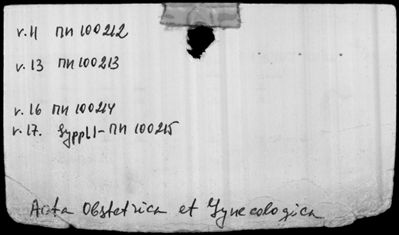 v. 11 пи 100212
v. 13 пи 100213
v. 16 пи 100214
v. 17. Suppl 1 - пи 100215
Acta Obstetrica et Gynecologica